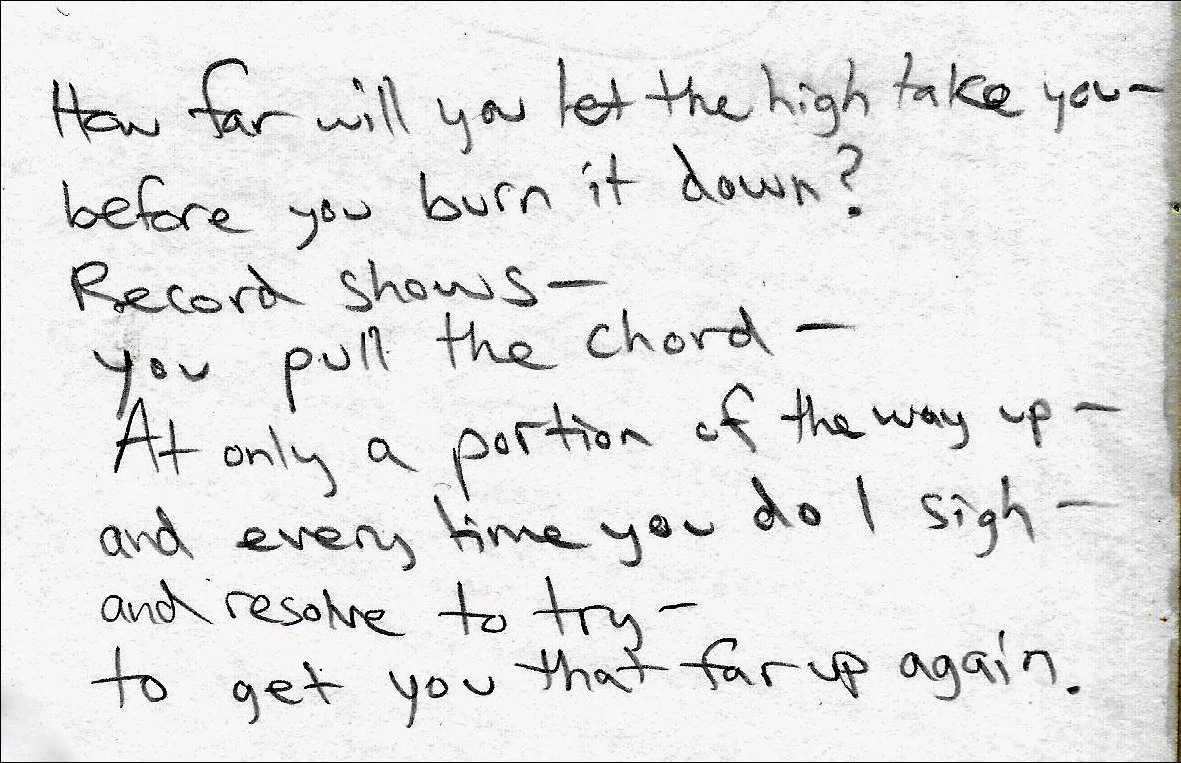 How far will you let the high take you—
before you burn it down?
Record shows—
you pull the chord—
At only a portion of the way up—
and every time you do I sigh—
and resolve to try—
to get you that far up again.